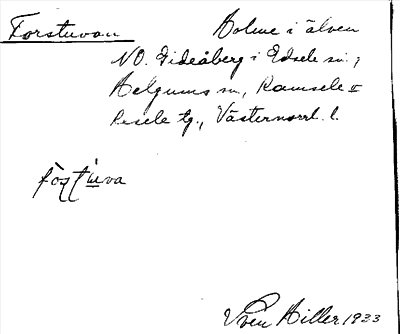 Forstuvan Holme i älven
NO. Gideåberg i Edsele sn.,
Helgums sn., Ramsele o.
Resele tg., Västernorrl. l.
Sven Hiller 1933